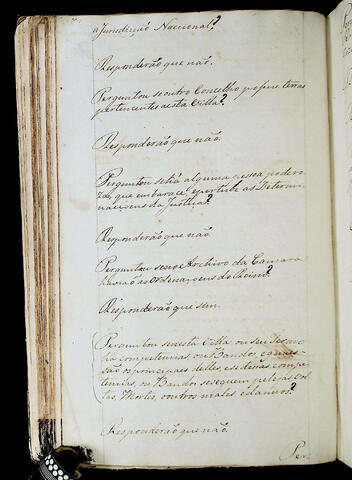 a Jurisdicção Nacional?
Responderão que não.
Perguntou se outro Concelho possue terras
pertencentes a esta Villa?
Responderão que não.
Perguntou se há alguma pessoa podero
za, que embarace, e perturbe as Determi
naçoens da Justiça?
Responderão que não
Perguntou se no Archivo da Camara
havia ás Ordenaçoens do Reino?
Responderão que sim.
Perguntou se nesta Villa, ou seu
há competencias, ou Bandos, e quaes
são os principaes delles, e se destas compe
tencias, ou Bandos se seguem pelejas
Mortes, outros males e damnos?
Responderão que não.
Per